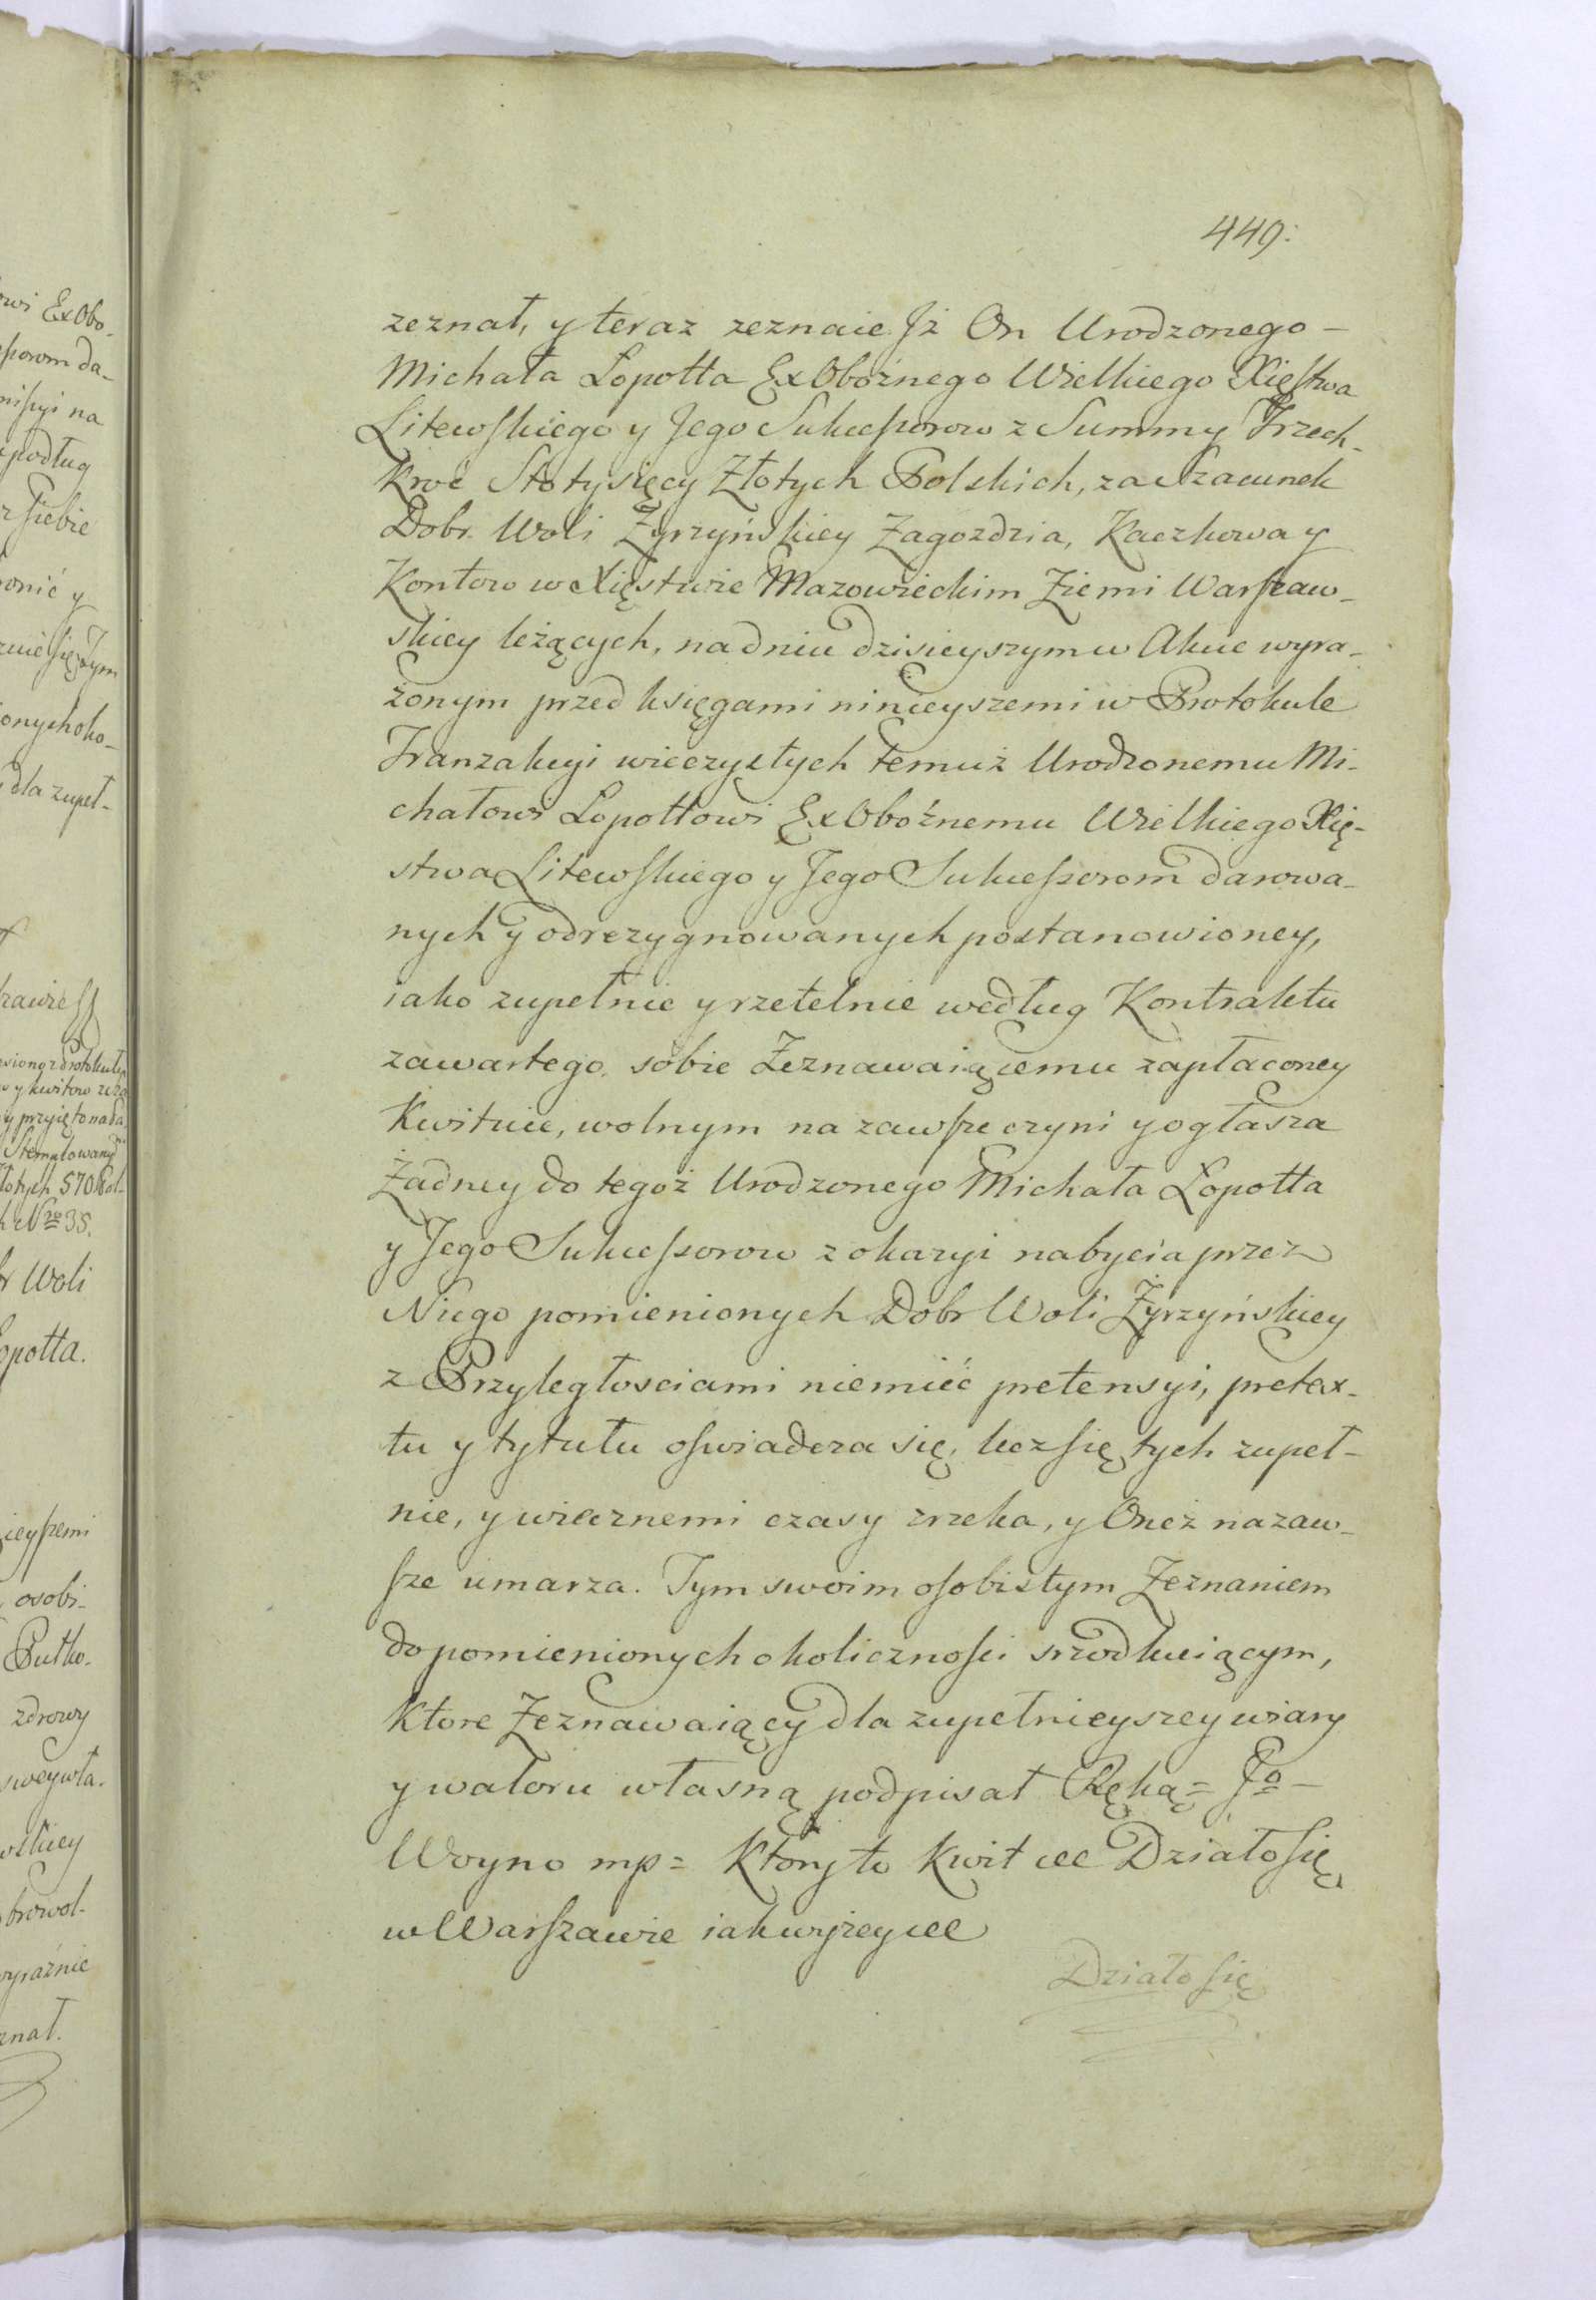 449.
zeznał, y teraz zeznaie Jż On Urodzonego –
Michała Lopotta ExObożnego Wielkiego Xięstwa
Litewskiego y Jego Sukcessorow z Summy Trzech-
kroć Stotysięcy Złotych Polskich, za Szacunek
Dobr Woli Żyrzyńskiey Zagozdzia, Kaczkowa y
Kontow w Xięstwie Mazowieckim Ziemi Warszaw-
skiey leżących, na dniu dzisieyszym w Akcie wyra-
żonym przed księgami ninieyszemi w Protokule
Tranzakcyi wieczystych temuż Urodzonemu Mi-
chałowi Lopottowi ExObożnemu Wielkiego Xię-
stwa Litewskiego y Jego Sukcessorom darowa-
nych y odrezygnowanych postanowioney,
iako zupełnie y rzetelnie według Kontraktu
zawartego sobie Zeznawaiącemu zapłaconey
Kwituie, wolnym na zawsze czyni y ogłasza
Żadney do tegoż Urodzonego Michała Lopotta
y Jego Sukcessorow z okazyi nabycia przez
Niego pomienionych Dobr Woli Żyrzyńskiey
z Przyległosciami niemieć pretensyi, pretex-
tu y tytułu oswiadcza się, lecz się tych zupeł-
nie, y wiecznemi czasy zrzeka, y Oneż nazaw-
sze umarza. Tym swoim osobistym Zeznaniem
do pomienionych okolicznosci srzodkuiącym,
Ktore Zeznawaiący dla zupełnieyszey wiary
y waloru własną podpisał Ręką = Jo –
Woyno mp = Ktory to Kwit etc Działo się
w Warszawie iak wyżey etc
Działo się